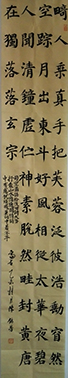 畸人乘真手把芙蓉泛彼浩劫窅然
空踪月出東斗好風相從太華夜碧
人聞清鐘虛伫神素脫然畦封黃唐
在獨落落玄宗